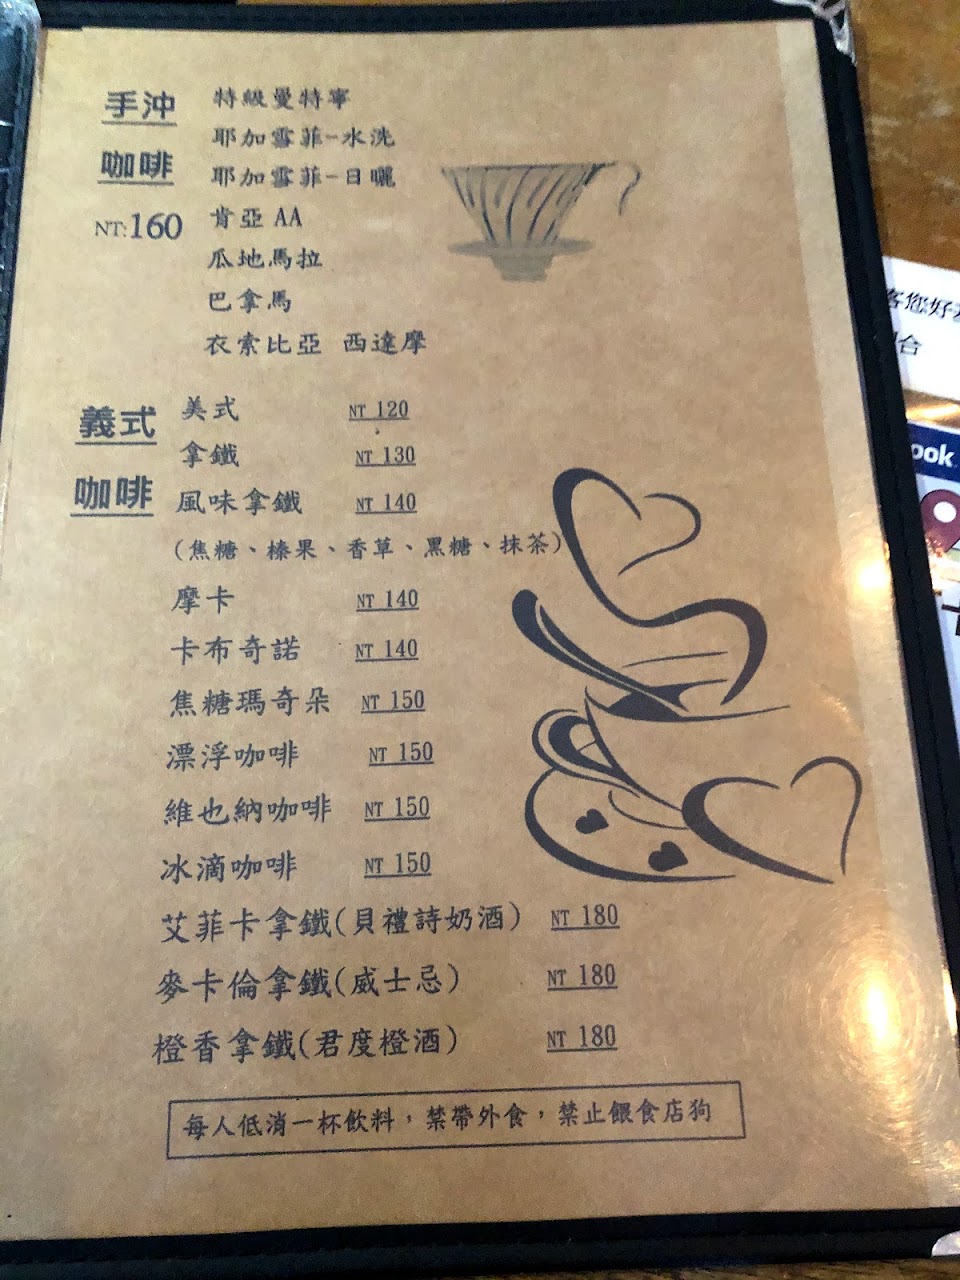 手沖
咖啡
NT:160
特級曼特寧
耶加雪菲-水洗
耶加雪菲-日曬
肯亞 AA
瓜地馬拉
巴拿馬
衣索比亞 西達摩
義式
咖啡
美式 NT 120
拿鐵 NT 130
風味拿鐵 NT 140
(焦糖、榛果、香草、黑糖、抹茶)
摩卡 NT 140
卡布奇諾 NT 140
焦糖瑪奇朵 NT 150
漂浮咖啡 NT 150
維也納咖啡 NT 150
冰滴咖啡 NT 150
艾菲卡拿鐵(貝禮詩奶酒) NT 180
麥卡倫拿鐵(威士忌) NT 180
橙香拿鐵(君度橙酒) NT 180
每人低消一杯飲料，禁帶外食，禁止餵食店狗
客您好
合
ook